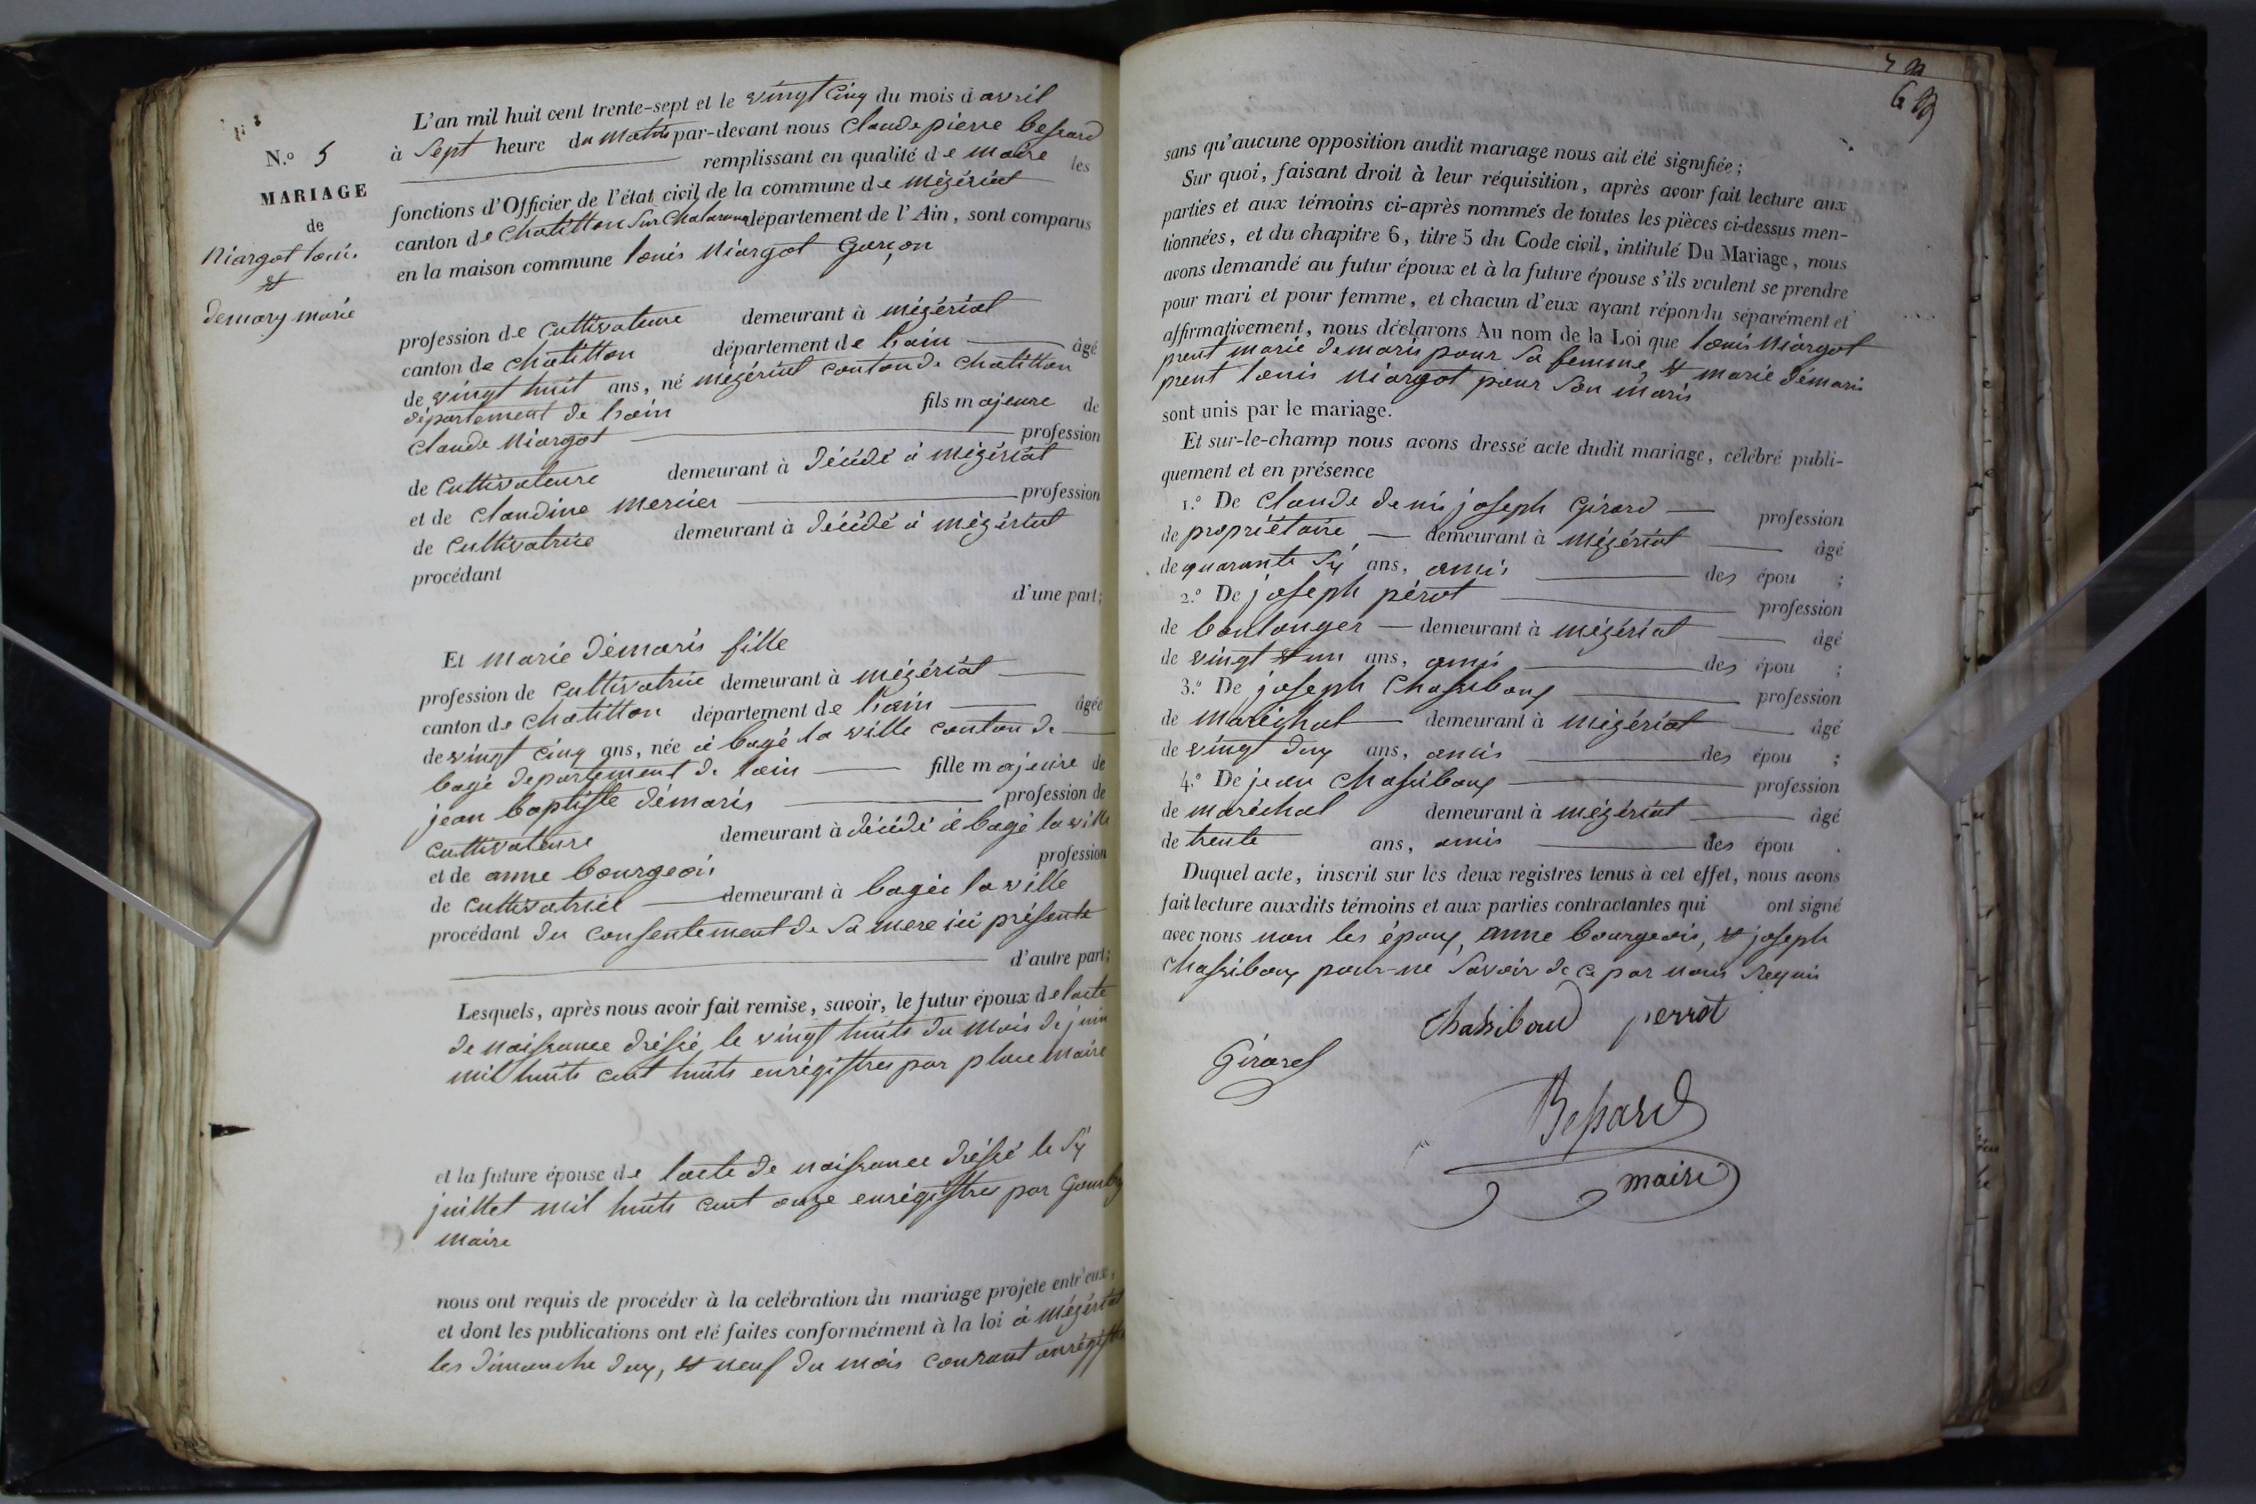 N.o 5
MARIAGE
de
Niargot louis
et
demary marie
L'an mil huit cent trente-sept et le vingt cinq du mois d avril
à Sept heure du matin par-devant nous Claude pierre Bessard
remplissant en qualité de maire les
fonctions d'Officier de l'état civil de la commune de mézériat
canton de Chatillon Sur Chalaronne département de l'Ain, sont comparus
en la maison commune louis Niargot Garçon
profession de Cultivateure demeurant à mézériat
canton de chatillon département de lain âgé
de vingt huit ans, né mézériat canton de chatillon
département de lain fils majeure de
Claude Niargot profession
de Cultivateure demeurant à décédé à mézériat
et de Claudine mercier profession
de Cultivatrice demeurant à décédé à mézériat
procédant
d'une part;
Et marie démaris fille
profession de Cultivatrice demeurant à mézériat
canton de chatillon département de lain âgée
de vingt cinq ans, née à bagé la ville canton de
bagé département de lain fille majeure de
jean baptiste démaris profession de
Cultivateure demeurant à décédé à bagé la ville
et de anne bourgeois profession
de Cultivatrice demeurant à bagée la ville
procédant du consentement de Sa mere ici présente
d'autre part;
Lesquels, après nous avoir fait remise, savoir, le futur époux de lacte
de naissance dréssé le vingt huits du mois de juin
mil huits cent huits enrégistres par place maire
et la future épouse de lacte de naissance dréssé le Sy
juillet mil huits cent onze enrégistres par
maire
nous ont requis de procéder à la celébration du mariage projeté entr'eux,
et dont les publications ont été faites conformément à la loi à mézériat
les dimanche duy, et neuf du mois courant
sans qu'aucune opposition audit mariage nous ait été signifiée;
Sur quoi, faisant droit à leur réquisition, après avoir fait lecture aux
parties et aux témoins ci-après nommés de toutes les pièces ci-dessus men-
tionnées, et du chapitre 6, titre 5 du Code civil, intitulé Du Mariage, nous
avons demandé au futur époux et à la future épouse s'ils veulent se prendre
pour mari et pour femme, et chacun d'eux ayant répondu séparément et
affirmativement, nous déclarons Au nom de la Loi que louis Niargot
prent marie demaris pour Sa femme, et marie démaris
prent louis Niargot pour Son maris
sont unis par le mariage.
Et sur-le-champ nous avons dressé acte dudit mariage, célébré publi-
quement et en présence
1.o De Claude denis joseph Girard profession
de propriétaire demeurant à mézériat âgé
de quarante Sy ans, amis des épou ;
2.o De joseph pérot profession
de boulanger demeurant à mézériat âgé
de vingt et un ans, amis des épou ;
3.o De joseph Chassiboux profession
de maréchal demeurant à mézériat âgé
de vingt duy ans, amis des épou ;
4.o De jean Chassiboux profession
de maréchal demeurant à mézériat âgé
de trente ans, amis des épou .
Duquel acte, inscrit sur les deux registres tenus à cet effet, nous avons
fait lecture auxdits témoins et aux parties contractantes qui ont signé
avec nous non les époux, anne bourgeois, et joseph
Chassiboux pour ne Savoir de ce par nous requis
Chassiboud perrot
Girard
Bessard
maire